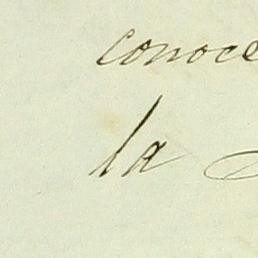 conoce
la